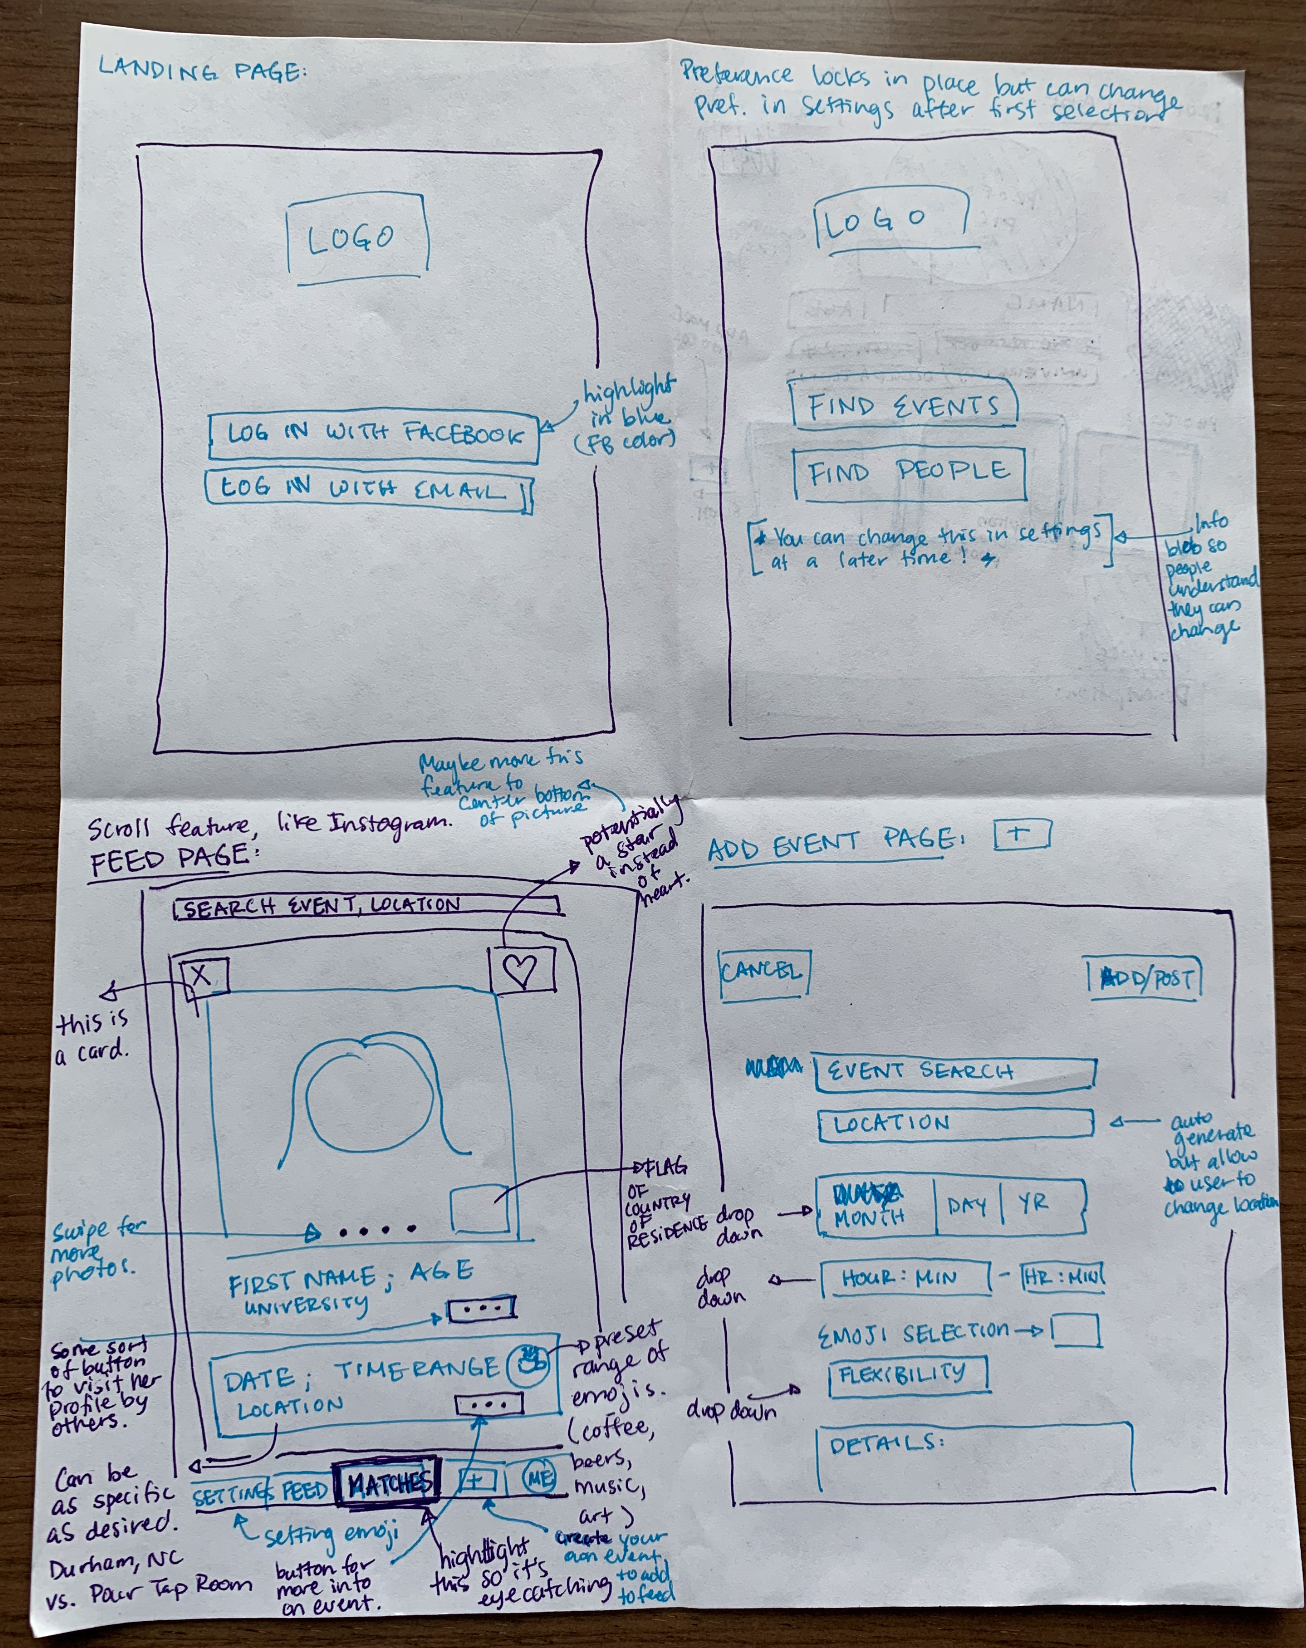 LANDING PAGE:
LOGO
highlight
in blue
(FB color)
LOG IN WITH FACEBOOK
LOG IN WITH EMAIL
Preference locks in place but can change
pref. in settings after first selection
LOGO
FIND EVENTS
FIND PEOPLE
* You can change this in settings
at a later time! *
Info
blob so
people
understand
they can
change
Scroll feature, like Instagram.
FEED PAGE:
Maybe move this
feature to
center bottom
of picture
potentially
a star
instead
of
heart.
SEARCH EVENT, LOCATION
X
this is
a card.
FLAG
OF
COUNTRY
OF
RESIDENCE
swipe for
more
photos.
FIRST NAME; AGE
UNIVERSITY
...
some sort
of button
to visit her
profile by
others.
DATE; TIME RANGE
LOCATION
...
preset
range of
emojis.
(coffee,
beers,
music,
art)
Can be
as specific
as desired.
Durham, NC
vs. Pour Tap Room
SETTINGS FEED MATCHES + ME
setting emoji
button for
more info
on event.
highlight
this so it's
eyecatching
create your
own event
to add
to feed
ADD EVENT PAGE: +
CANCEL
ADD/POST
EVENT SEARCH
LOCATION
auto
generate
but allow
user to
change location
drop
down
MONTH DAY YR
drop
down
HOUR: MIN - HR: MIN
EMOJI SELECTION
FLEXIBILITY
drop down
DETAILS: